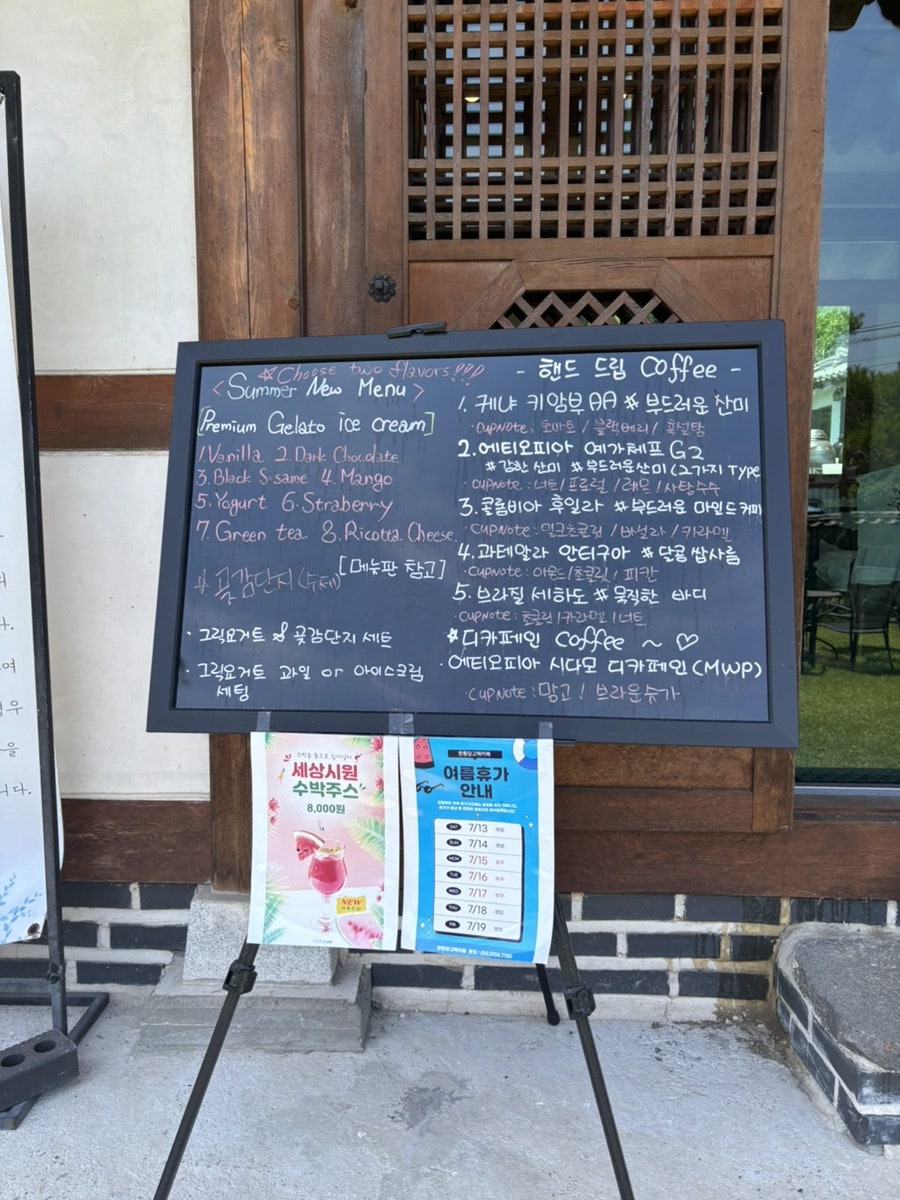 ☆Choose two flavors!!!
<Summer New Menu>
[Premium Gelato ice cream]
1.Vanilla 2.Dark Chocolate
3.Black S·same 4.Mango
5.Yogurt 6.Straberry
7.Green tea 8.Ricotta Cheese.
# 곶감단지(수제) [메뉴판 참고]
·그릭요거트 & 곶감단지 세트
·그릭요거트 과일 or 아이스크림
세팅
- 핸드 드립 Coffee -
1. 케냐 키암부 AA # 부드러운 산미
·CupNote: 토마토 / 블랙베리 / 흑설탕
2.에티오피아 예가체프 G2
#강한 산미 #부드러운산미 (2가지 Type
·CupNote: 너트/프로럴 / 레몬 / 사탕수수
3.콜롬비아 후일라 #부드러운 마일드커피
·CupNote: 밀크초콜릿 / 바닐라 / 카라멜
4.과테말라 안티구아 #달콤 쌉사름
·CupNote: 아몬드/초콜릿 / 피칸
5.브라질 세하도 #묵직한 바디
·CupNote: 초콜릿/카라멜 / 너트
☆디카페인 Coffee ~ ♡
·에티오피아 시다모 디카페인(MWP)
·CupNote: 망고 / 브라운슈가
세상시원
수박주스
8,000원
NEW
여름휴가
안내
SAT 7/13 영업
SUN 7/14 영업
MON 7/15 휴무
TUE 7/16 휴무
WED 7/17 휴무
THU 7/18 영업
FRI 7/19 영업